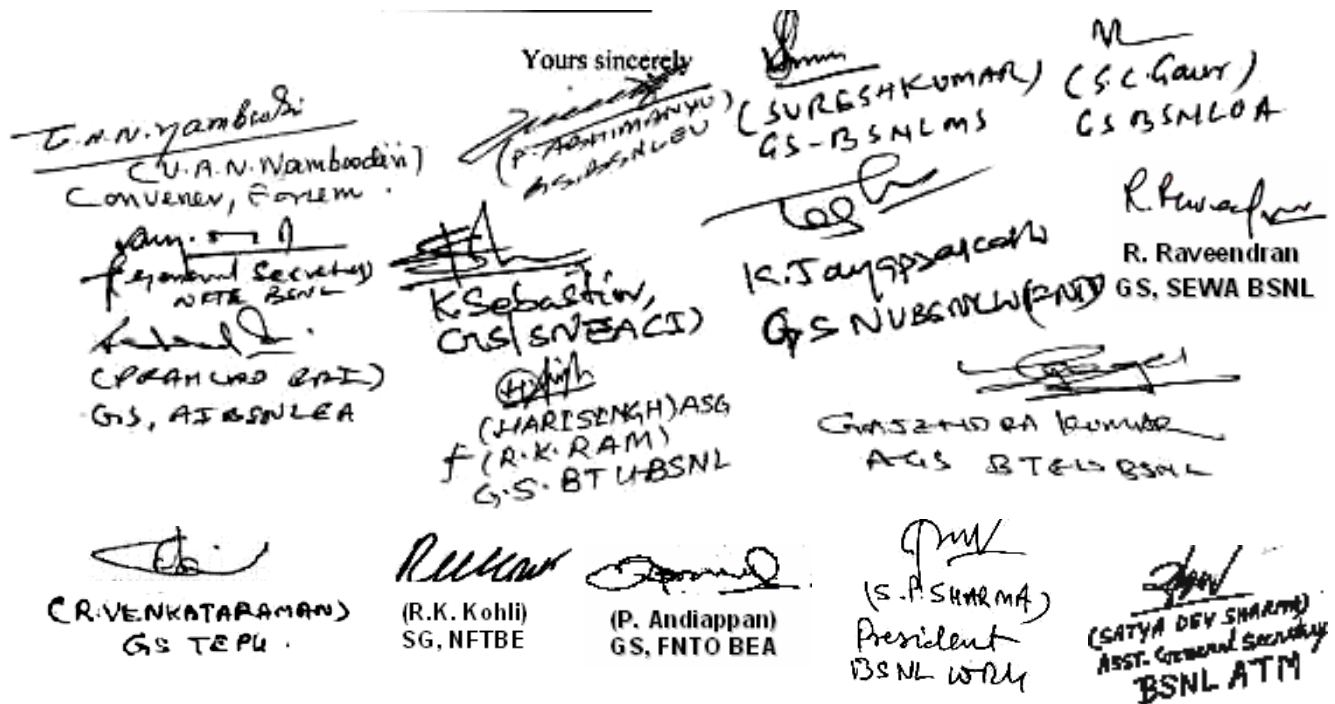 Yours sincerely
V.A.N. Namboodiri
(V.A.N. Namboodiri)
Convener, Forum.
(P. ABHIMANYU)
GS. BSNLEU
(SURESHKUMAR)
GS-BSNLMS
(S.C. Gaur)
GS BSNLOA
f General Secretary
NFTE BSNL
K. Sebastin,
GS(SNEA(I)
K. Jayaprakash
GS NUBSNLW(FNTO)
R. Raveendran
GS, SEWA BSNL
(PRAHLAD RAI)
GS, AIBSNLEA
(HARISINGH) ASG
f (R.K. RAM)
G.S. BTU-BSNL
GAJENDRA KUMAR
AGS BTEU BSNL
(R. VENKATARAMAN)
GS TEPU.
(R.K. Kohli)
SG, NFTBE
(P. Andiappan)
GS, FNTO BEA
(S.P. SHARMA)
President
BSNL WRU
(SATYA DEV SHARMA)
ASST. General Secretary
BSNL ATM